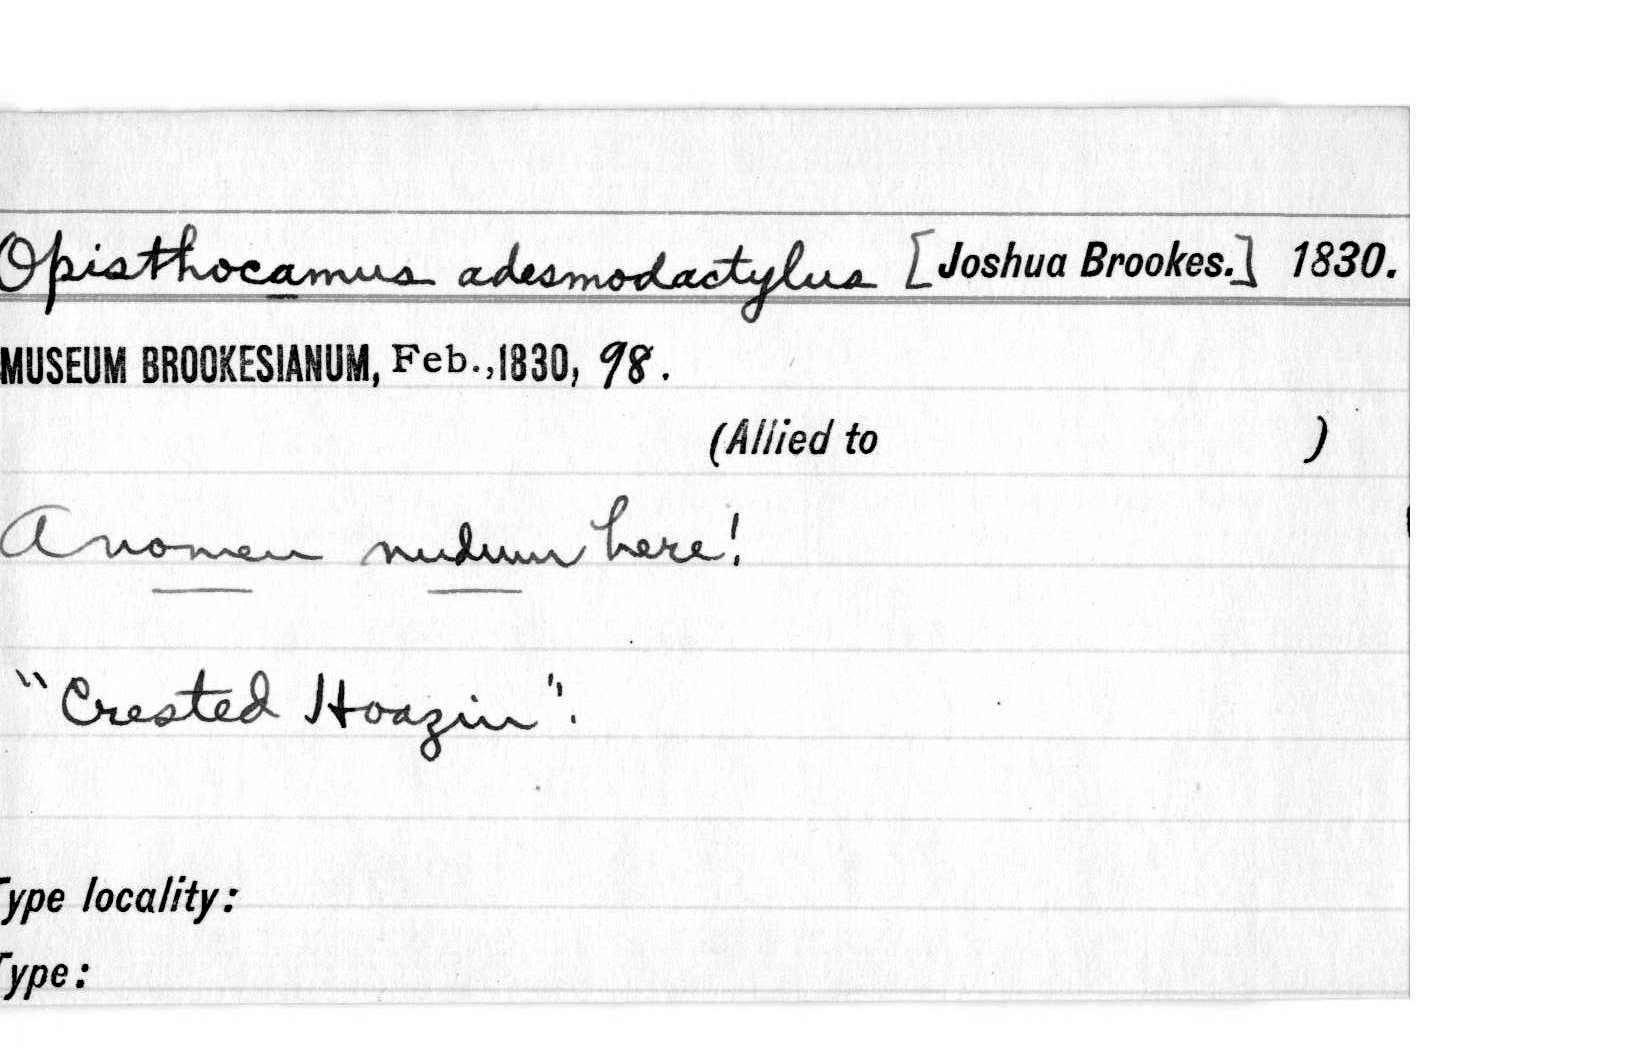 Opisthocamus adesmodactylus [Joshua Brookes.] 1830.
MUSEUM BROOKESIANUM, Feb.,1830, 98.
(Allied to )
A nomen nudum here!
"Crested Hoazin".
Type locality:
Type: